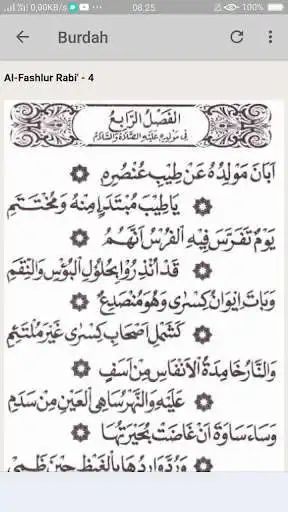 0,00KB/s 08.25 100%
Burdah
Al-Fashlur Rabi' - 4
الفَصْلُ الرَّابِعُ
فِي مَوْلِدِهِ عَلَيْهِ الصَّلَاةُ وَالسَّلَامُ
اَبَانَ مَوْلِدُهُ عَنْ طِيْبِ عُنْصُرِهِ
يَاطِيْبَ مُبْتَدَإٍ مِنْهُ وَمُخْتَتَمِ
يَوْمٌ تَفَرَّسَ فِيْهِ الْفُرْسُ اَنَّهُمُ
قَدْ اُنْذِرُوْا بِحُلُوْلِ الْبُؤْسِ وَالنِّقَمِ
وَبَاتَ اِيْوَانُ كِسْرٰى وَهُوَ مُنْصَدِعٌ
كَشَمْلِ اَصْحَابِ كِسْرٰى غَيْرَ مُلْتَئِمِ
وَالنَّارُ خَامِدَةُ الْاَنْفَاسِ مِنْ اَسَفٍ
عَلَيْهِ وَالنَّهْرُ سَاهِى الْعَيْنِ مِنْ سَدَمِ
وَسَاءَ سَاوَةَ اَنْ غَاضَتْ بُحَيْرَتُهَا
وَرُدَّ وَارِدُهَا بِالْغَيْظِ حِيْنَ ظَمِىْ